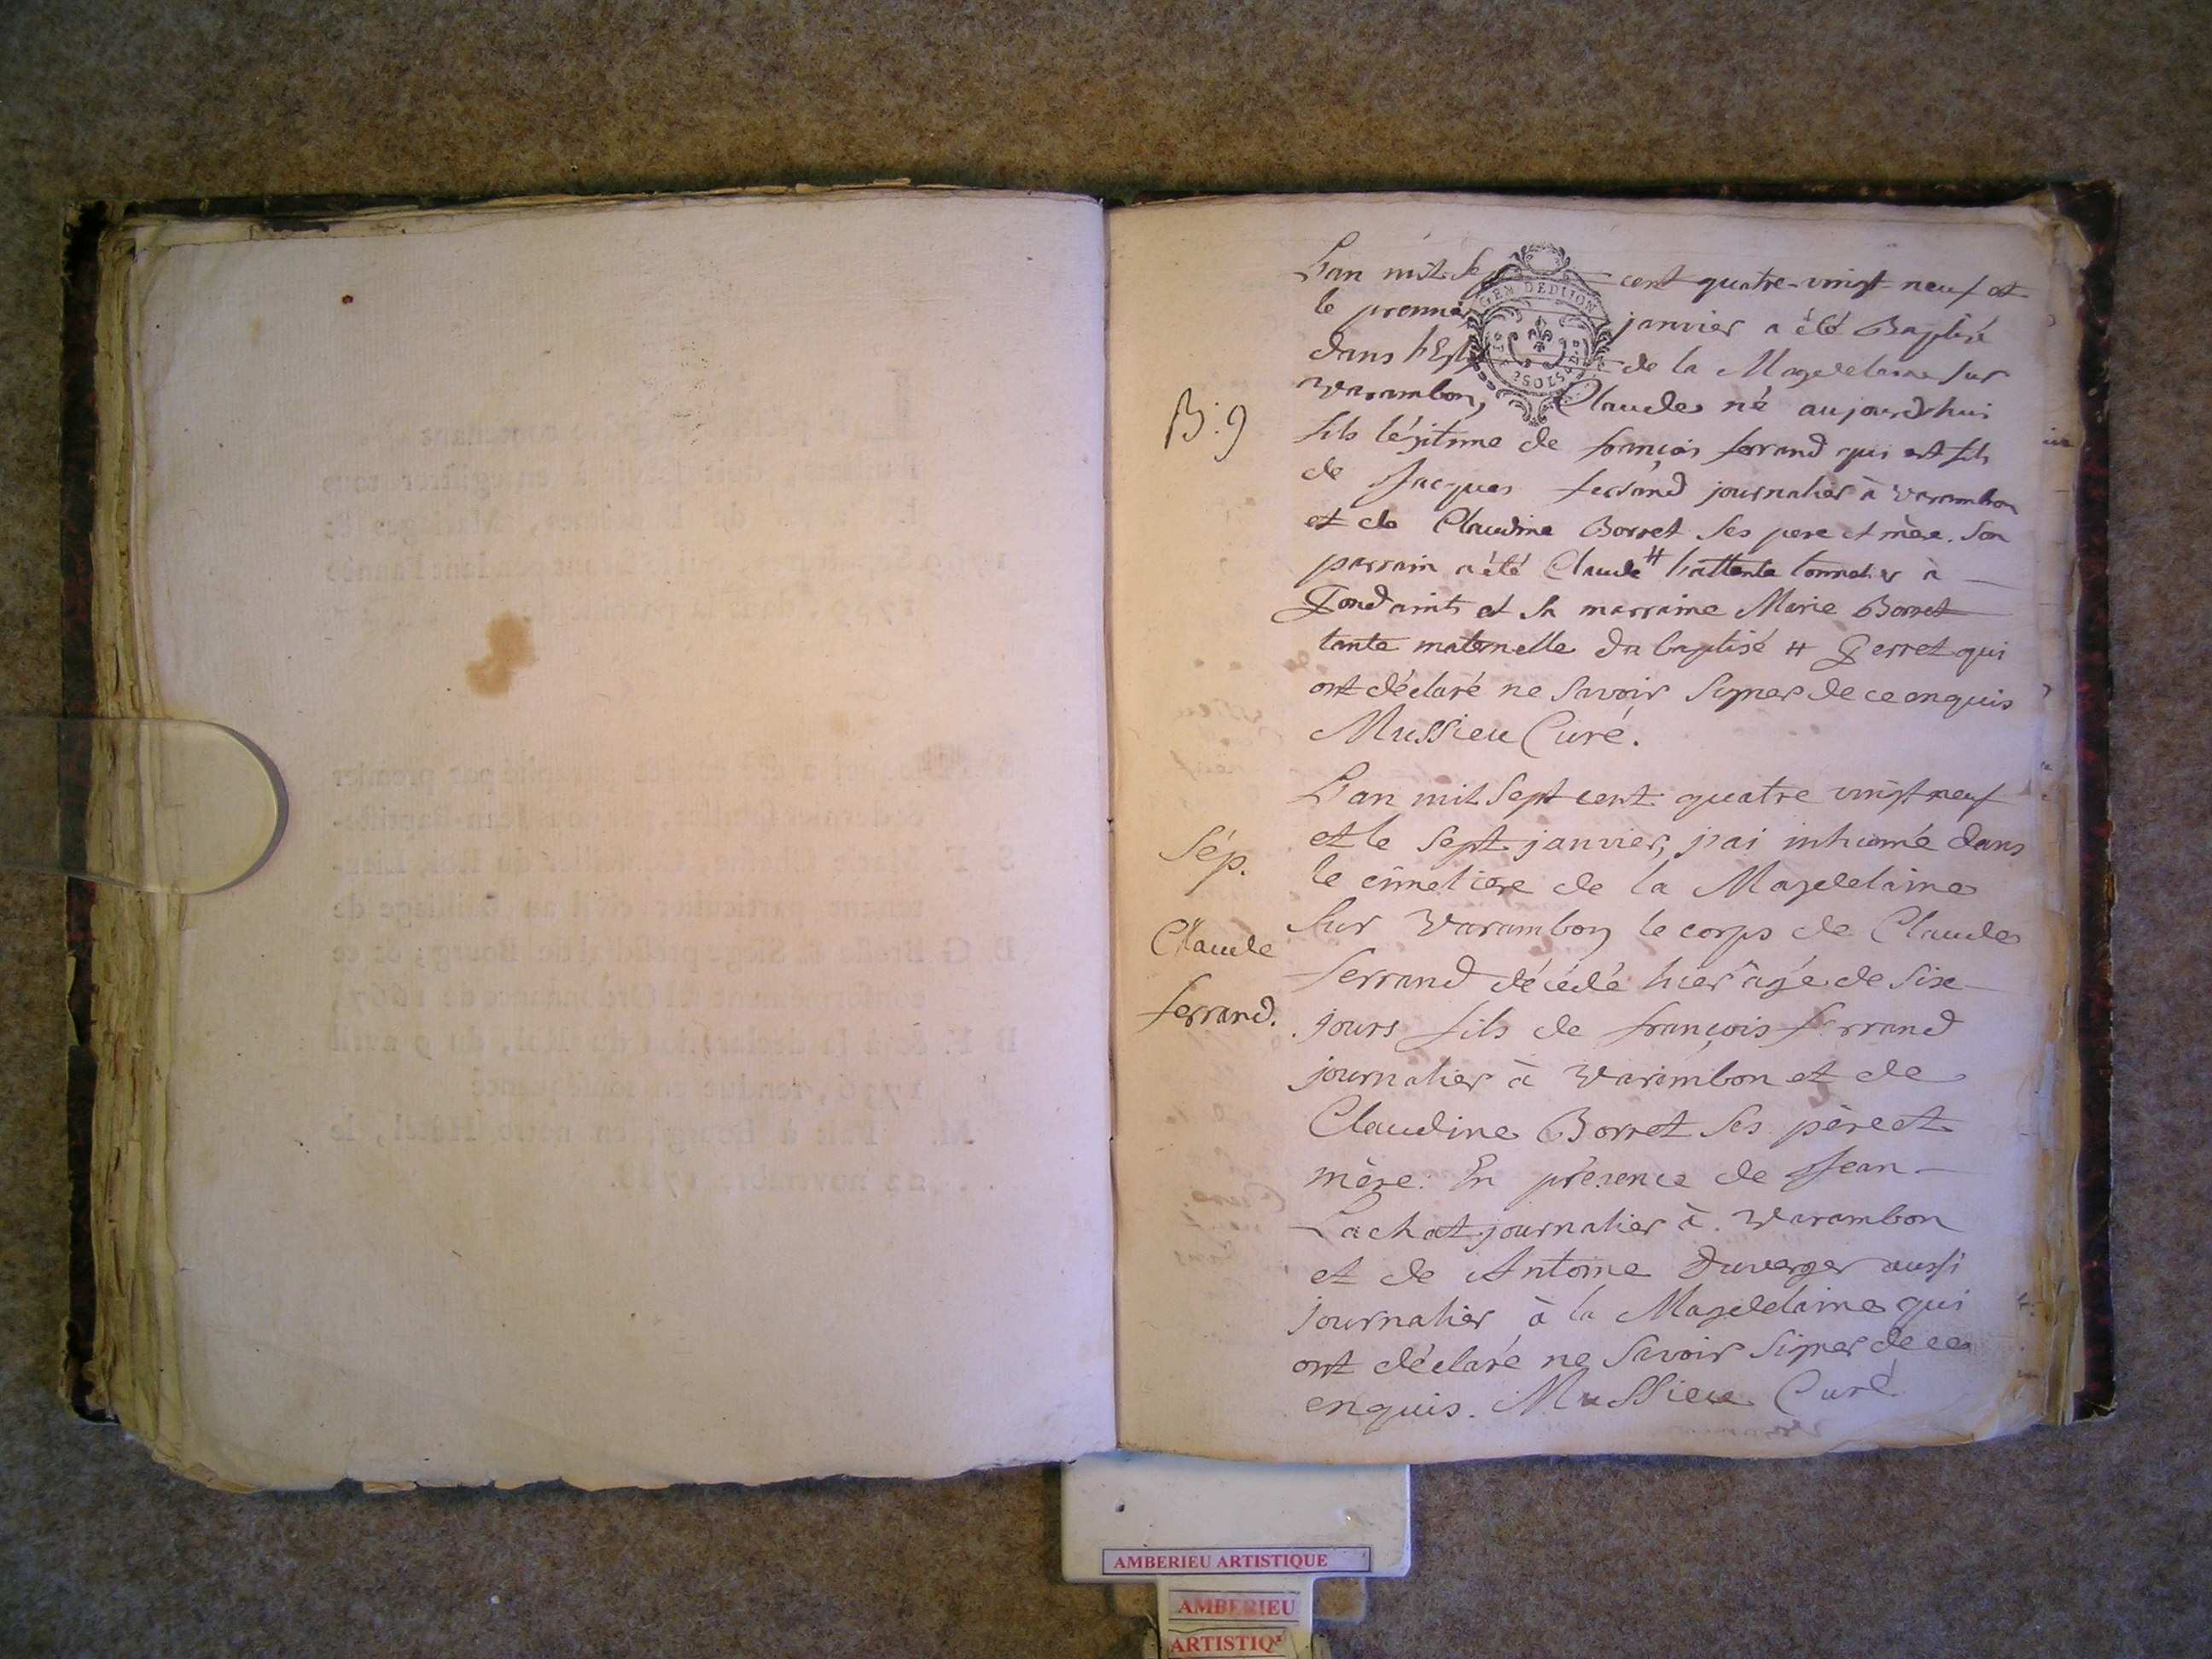 L'an mil sept cent quatre-vingt neuf et
le premier janvier a été Baptisé
dans l'Eglise de la Magdelaine sur
Varambon, Claude né aujourd'hui
B. 9
fils légitime de françois ferrand qui est fils
de Jacques ferrand journalier à varambon
et de Claudine Borret ses pere et mère. Son
parrain a été Claude # à
et sa marraine Marie Borret
tante maternelle du baptisé # Gerret qui
ont déclaré ne savoir signer de ce enquis
Mussieu Curé.
L'an mil sept cent quatre vingt neuf
et le sept janvier, j'ai inhumé dans
Sép.
le cimetiere de la Magdelaine
sur Varambon le corps de Claude
Claude
ferrand décédé hier agé de six
ferrand.
jours fils de françois ferrand
journalier à Varambon et de
Claudine Borret ses père et
mère. En présence de Jean
Lachat journalier à Varambon
et de Antoine Duverger aussi
journalier à la Magdelaine qui
ont déclaré ne savoir signer de ce
enquis. Mussieu Curé
AMBERIEU ARTISTIQUE
AMBERIEU
ARTISTIQ